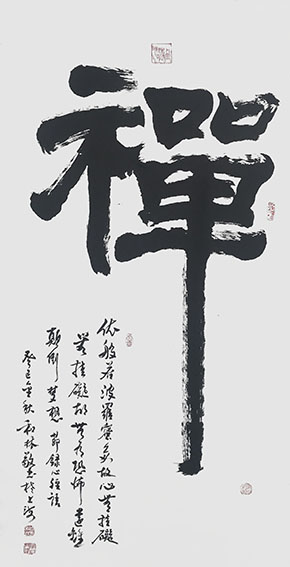 禪
依般若波羅蜜多故心無挂礙
無挂礙故無有恐怖遠離
顛倒夢想 節錄心經語
癸巳年秋 林敬 於上海